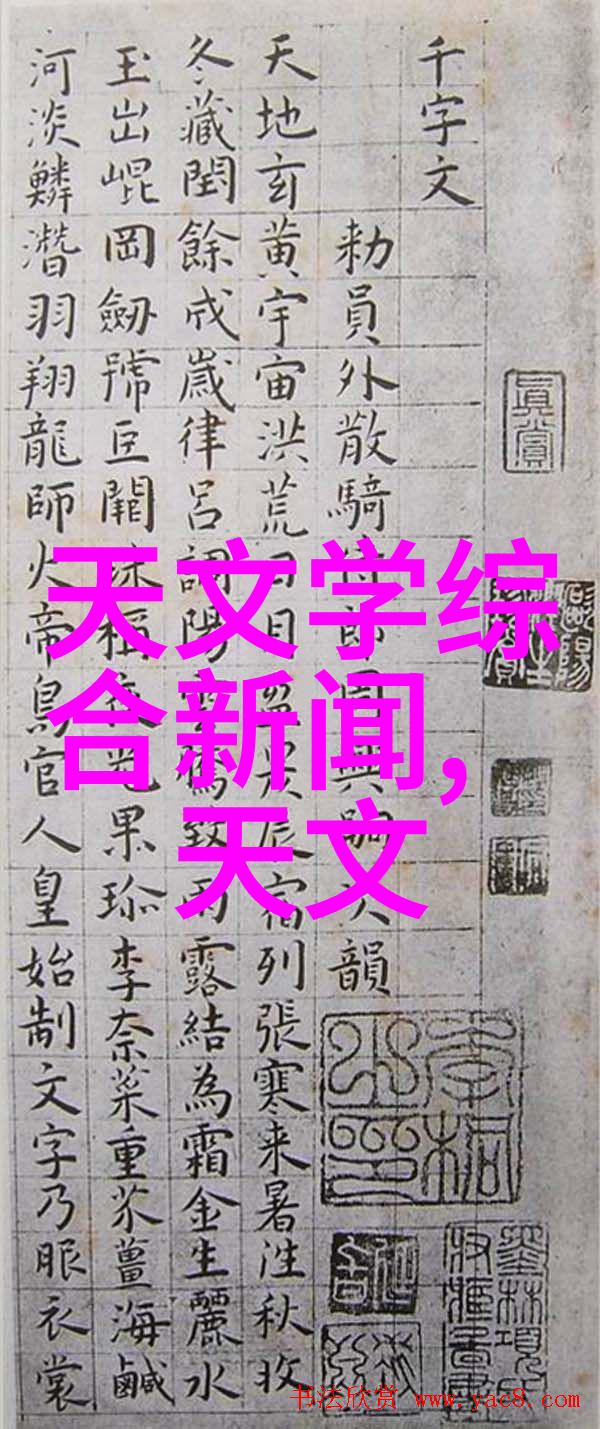 千字文
勑員外散騎侍郎周興嗣次韻
天地玄黃宇宙洪荒日月盈昃辰宿列張寒来暑往秋收
冬藏閏餘成歲律呂調陽雲騰致雨露結為霜金生麗水
玉出崐岡劒號巨闕珠稱夜光果珎李柰菜重芥薑海鹹
河淡鱗潛羽翔龍師火帝鳥官人皇始制文字乃服衣裳
眞賞
天文学综
合新闻,
天文
书法欣赏 www.yac8.com